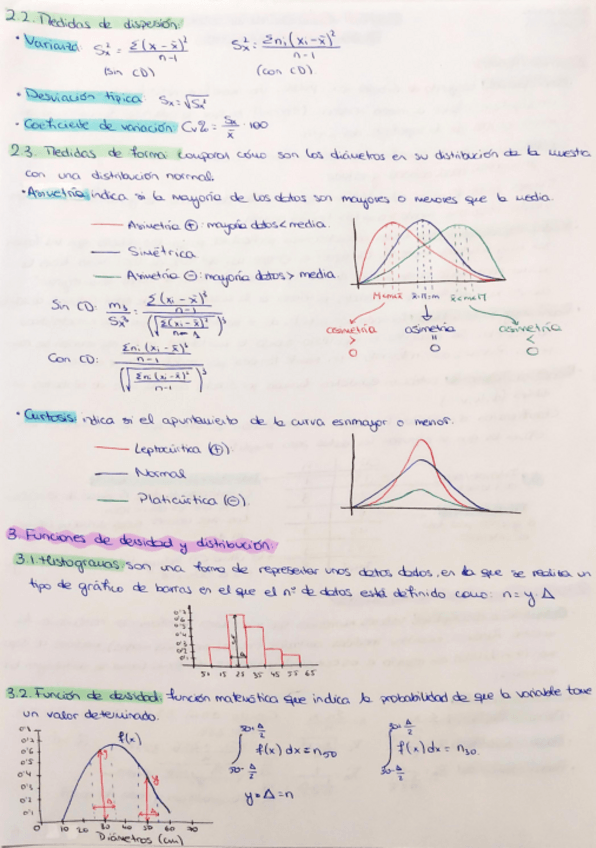 2.2. Medidas de dispersión:
• Varianza: Sx² = Σ(x - x̄)² / n-1   Sx² = Σni(xi - x̄)² / n-1
(sin CD)   (con CD)
• Desviación típica: Sx = √Sx²
• Coeficiente de variación: CV% = Sx / x̄ · 100
2.3. Medidas de forma: comparar cómo son los diámetros en su distribución de la muestra
con una distribución normal.
• Asimetría: indica si la mayoría de los datos son mayores o menores que la media.
Asimetría ⊕: mayoría datos < media.
Simétrica.
Asimetría ⊖: mayoría datos > media.
M<m<x̄   x̄=m=m   x̄<m<M
asimetría   asimetría   asimetría
>   =   <
0   0   0
Sin CD: m3 / Sx³ = Σ(xi - x̄)³ / n-1 / (√Σ(xi - x̄)² / n-1)³
Con CD: Σni(xi - x̄)³ / n-1 / (√Σni(xi - x̄)² / n-1)³
• Curtosis: indica si el apuntamiento de la curva es mayor o menor.
Leptocúrtica (⊕)
Normal
Platicúrtica (⊖)
3. Funciones de densidad y distribución:
3.1. Histogramas: son una forma de representar unos datos dados, en la que se realiza un
tipo de gráfico de barras en el que el nº de datos está definido como: n = y·Δ
15 25 35 45 55 65
3.2. Función de densidad: función matemática que indica la probabilidad de que la variable tome
un valor determinado.
f(x)
∫ 50+Δ/2 50-Δ/2 f(x) dx = n50   ∫ 30+Δ/2 30-Δ/2 f(x) dx = n30.
y·Δ = n
0 10 20 30 40 50 60 70
Diámetros (cm)